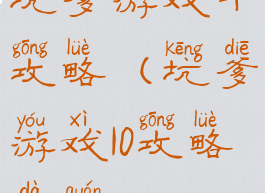 坑爹游戏十
gōng lüè kēng diē
攻略（坑爹
yóu xì gōng lüè
游戏10攻略
dà quán